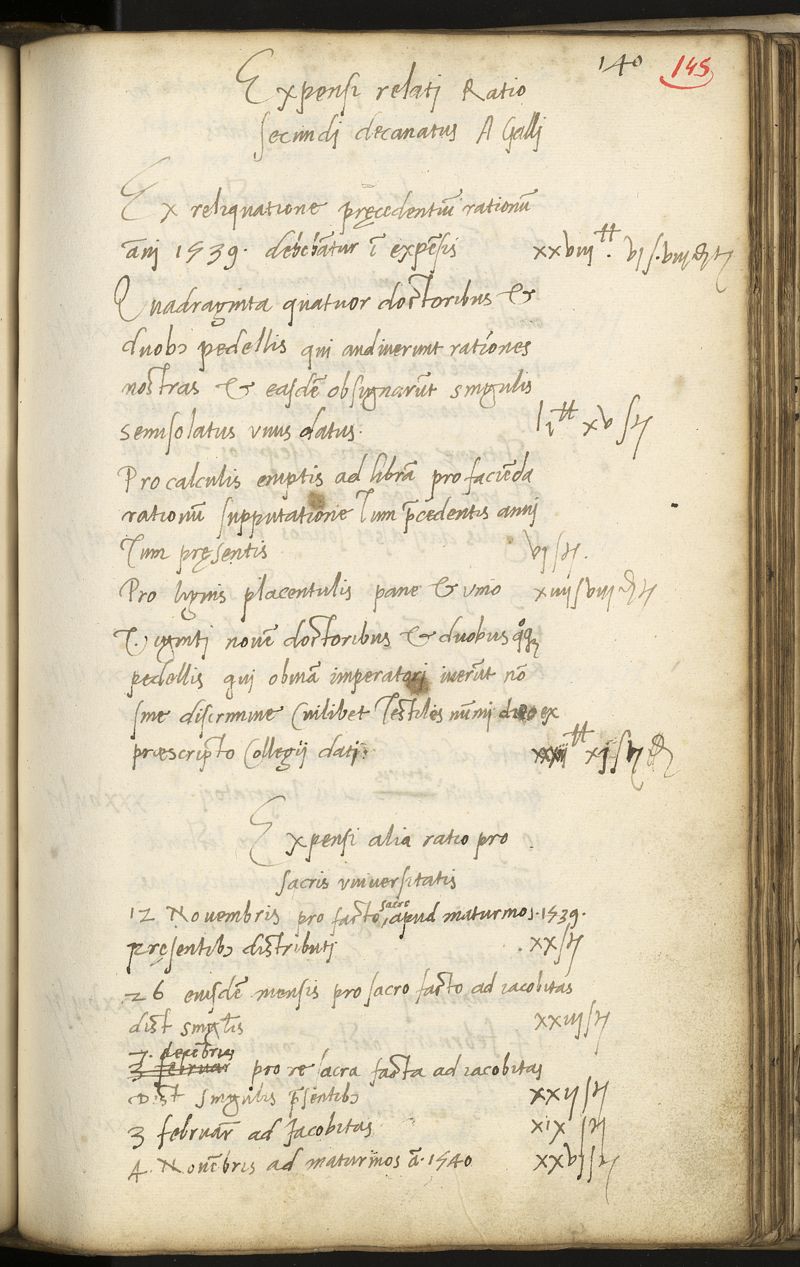 140 145
Expensi relati Ratio
secundi decanatus A Galli
Ex reliquatione pręcedentiū rationū
āni 1539. debebātur ī expēsis xxviii ₶. vj s. viij d t
Quadraginta quatuor doctoribus &
duobꝰ pedellis qui audiverunt rationes
nostras & easdē obsignarūt singulis
semisolatus unus datus. li ₶ xv s t
Pro calculis emptis ad librā pro facienda
rationū supputatione Tum p̄cedentis anni
Tum pręsentis vj s t.
Pro lignis placentulis pane & vino xiiij s viij d t
Viginti novē doctoribus & duobus
pedellis qui obviā imperatori iverūt nō
sine discrimine Cuilibet Testiles nūmi duo ex
præscripto Collegii dati: ₶ xj s t
Expensi alia ratio pro
sacris universitatis
sacro
12 Novembris pro facto, apud maturinos. 1539.
pręsentibꝰ distributi xx s t
26 eiusdē mensis pro sacro facto ad iacobitas
dist singłis xxiij s t
7. decēbris
3 februar pro re sacra facta ad iacobitas
Dist singulis p̄sentibꝰ xxij s t
3 februar̄ ad Jacobitas xix s t
4. Novēbris ad maturinos ā. 1540 xxvj s t